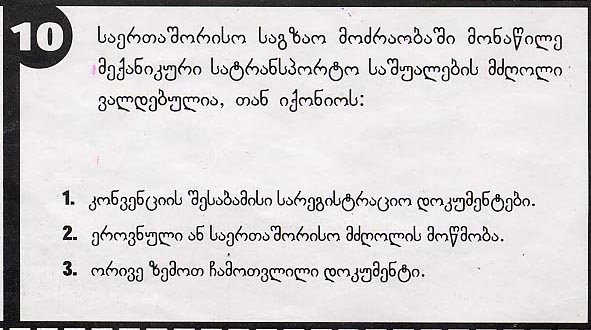 10
საერთაშორისო საგზაო მოძრაობაში მონაწილე
მექანიკური სატრანსპორტო საშუალების მძღოლი
ვალდებულია, თან იქონიოს:
1. კონვენციის შესაბამისი სარეგისტრაციო დოკუმენტები.
2. ეროვნული ან საერთაშორისო მძღოლის მოწმობა.
3. ორივე ზემოთ ჩამოთვლილი დოკუმენტი.